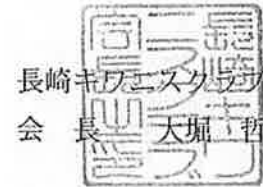 長崎キワニスクラブ
会 長 大堀 哲